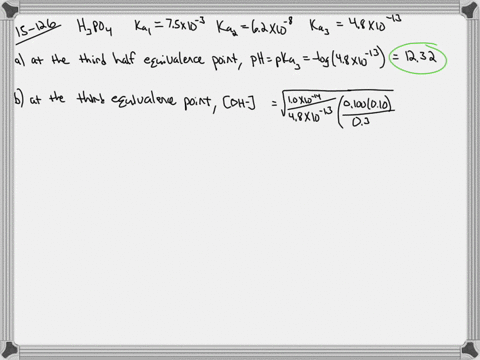 15-126 H₃PO₄ Ka₁ = 7.5×10⁻³ Ka₂ = 6.2×10⁻⁸ Ka₃ = 4.8×10⁻¹³
a) at the third half equivalence point, pH = pKa₃ = -log(4.8×10⁻¹³) = 12.32
b) at the third equivalence point, [OH-] = √(1.0×10⁻¹⁴/4.8×10⁻¹³ (0.100(0.10)/0.3